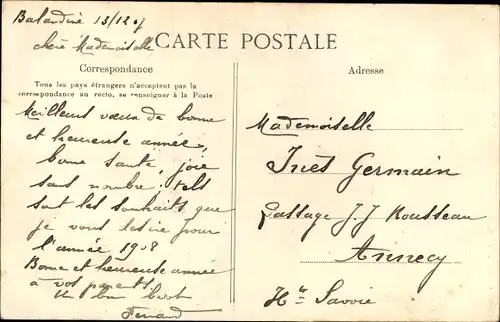 13/12 07
chère Mademoiselle
CARTE POSTALE
Correspondance
Tous les pays étrangers n'acceptent pas la
correspondance au recto, se renseigner à la Poste
Meilleurs vœux de bonne
et heureuse année,
bonne santé, joie
sans nombre. tels
sont les souhaits que
je vous désire pour
l'année 1908
Bonne et heureuse année
à vos parents
Un bon
Adresse
Mademoiselle
Inès Germain
Passage J. J Rousseau
Annecy
Hte Savoie